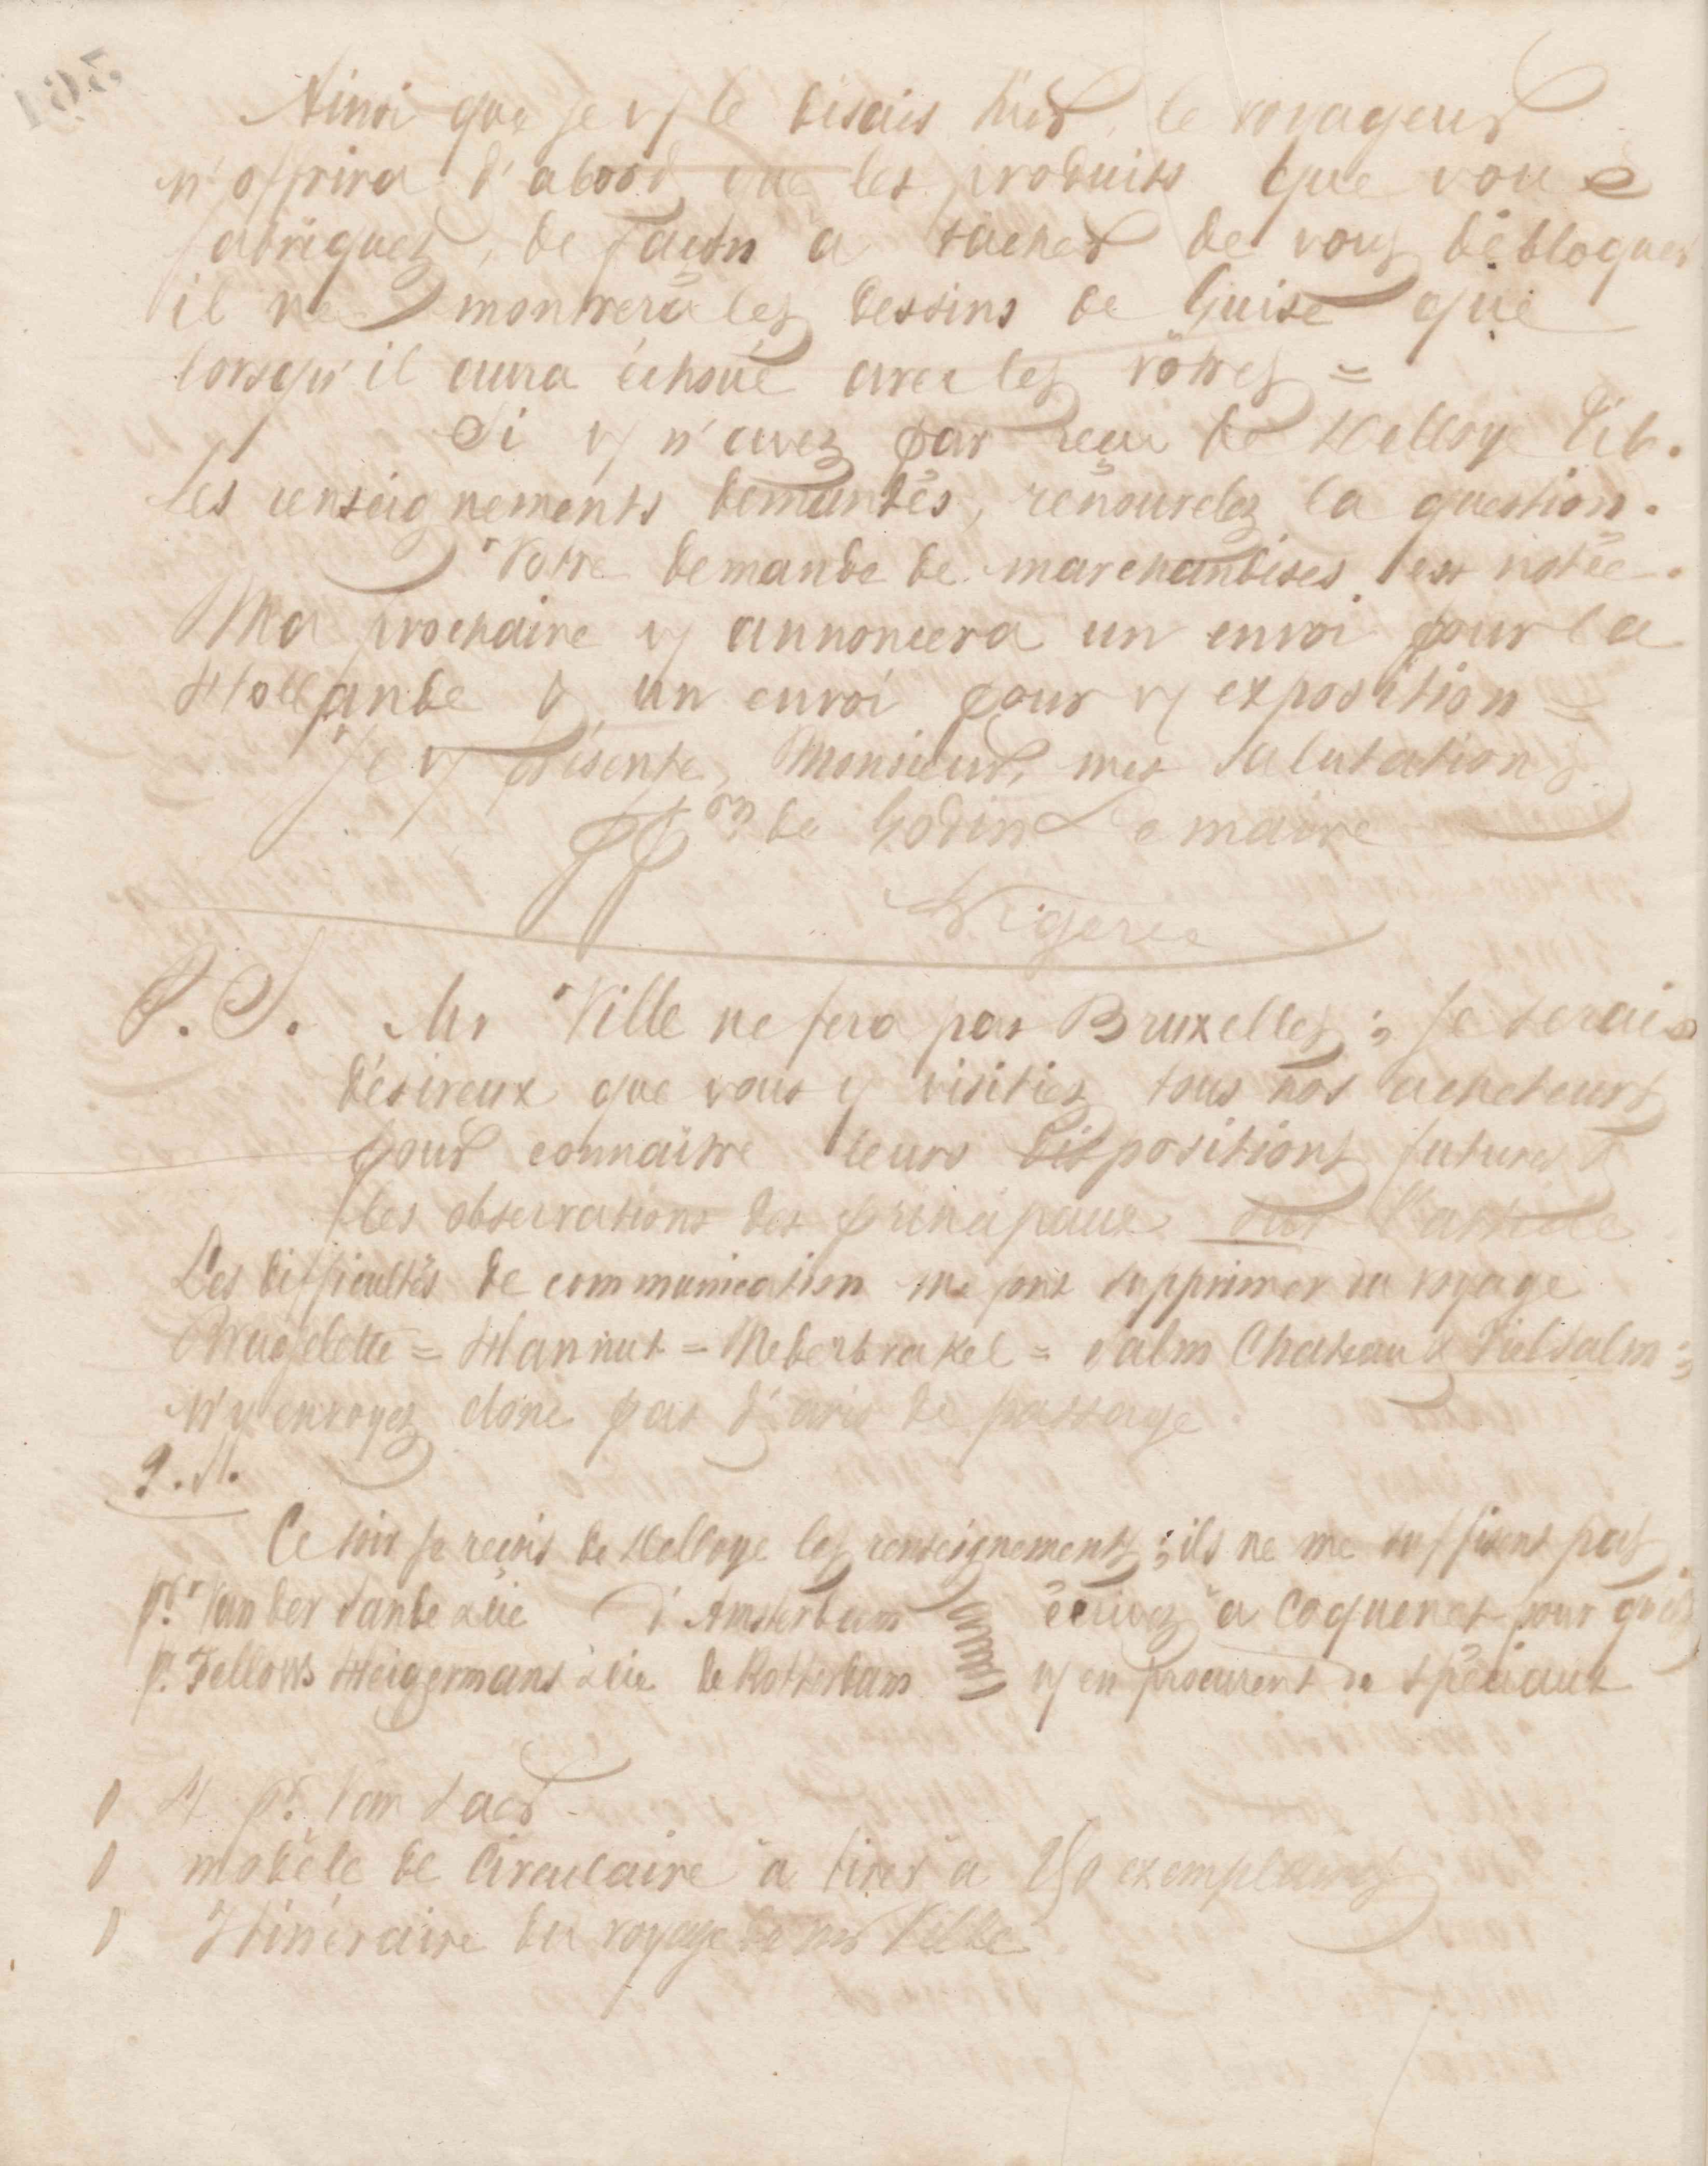 Ainsi que je vs le disais hier, le voyageur
n'offrira d'abord que les produits que vous
fabriquez, de façon à tâcher de vous débloquer
il ne montrera les dessins de Guise que
lorsqu'il aura échoué avec les vôtres =
Si vs n'avez pas reçu de Kelloye
les renseignements demandés, renouvelez la question.
Votre demande de marchandises est notée.
Ma prochaine vs annoncera un envoi pour la
Hollande & un envoi pour vs exposition =
Je vs présente, Monsieur, mes salutations
ppon de Godin Lemaire
P.S. Mr Ville ne fera pas Bruxelles ; je serais
désireux que vous y visitiez tous nos acheteurs
pour connaître leurs dispositions futures &
les observations des principaux sur l'article
Les difficultés de communication me font supprimer du voyage
Brugelette = Hannut = Nederbrakel = Salm Chateau & Vielsalm ;
n'y envoyez donc pas d'avis de passage.
Ce soir je reçois de Kelloye les renseignements ; ils ne me suffisent pas
pr Van der Sande & Cie d'Amsterdam écrivez à Coquenet pour qu'ils
pr Fellows Heigermans & Cie de Rotterdam vs en procurent de spéciaux
pr Van
modèle de Circulaire à tirer à 250 exemplaires
Itinéraire du voyage de mr Ville